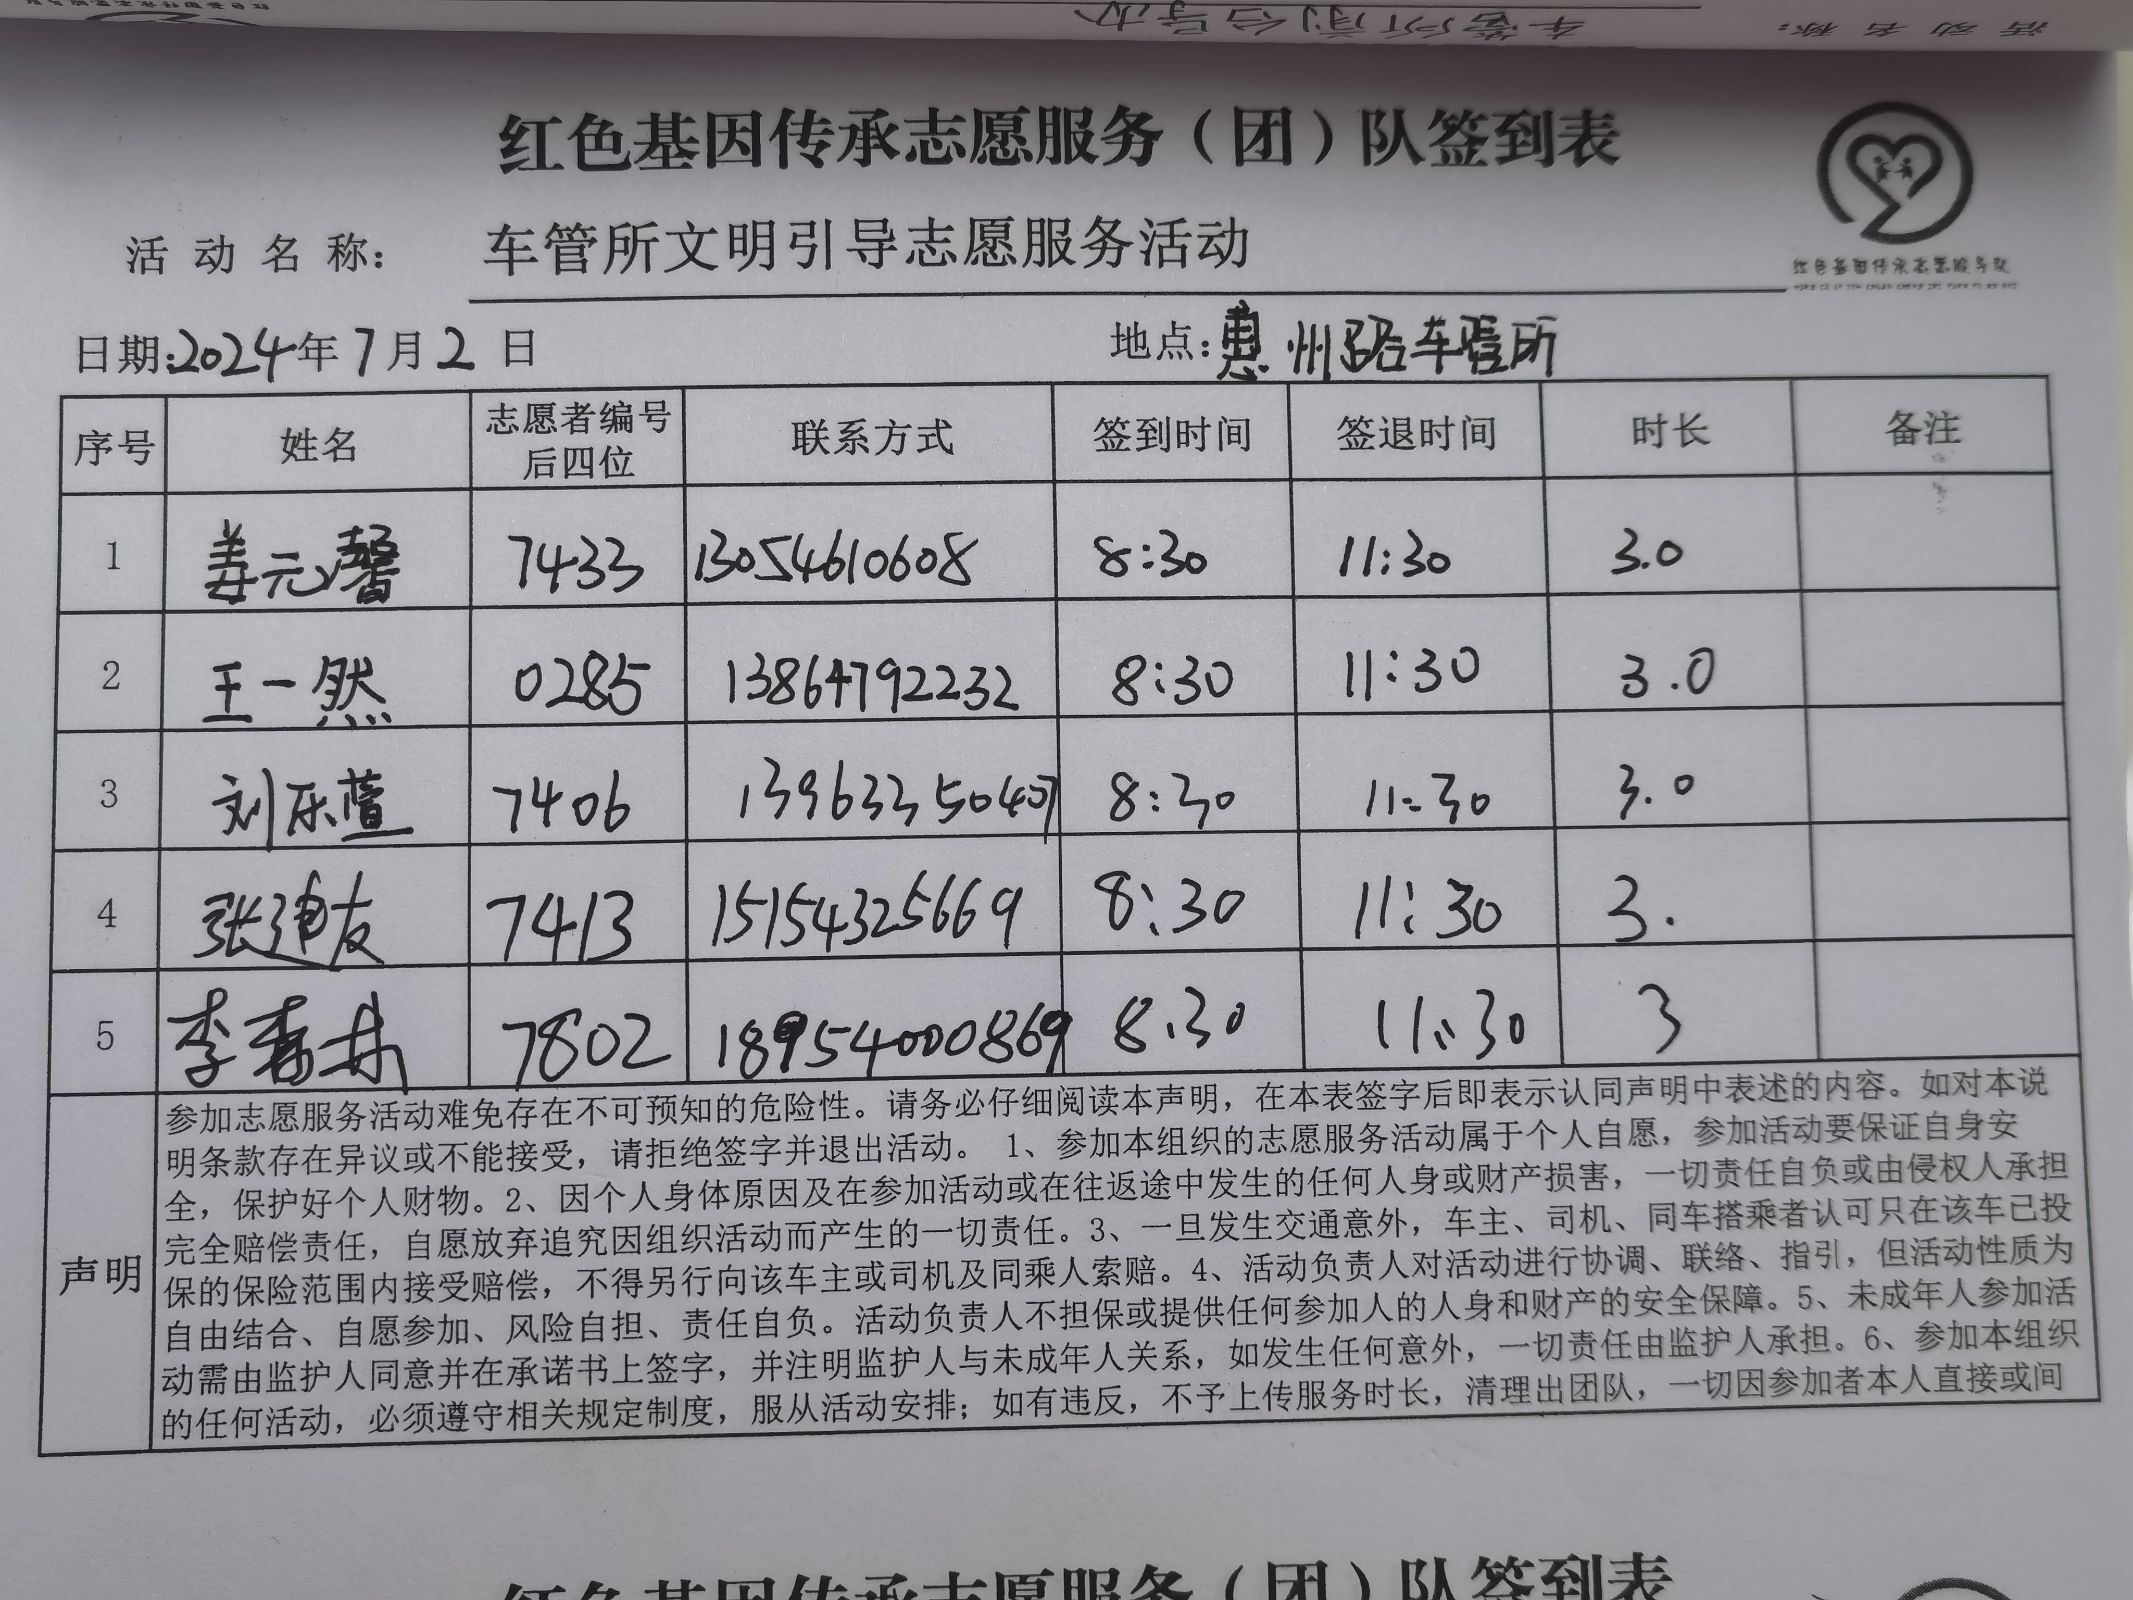 车管所前台导办
活动名称：
红色基因传承志愿服务（团）队签到表
活动名称： 车管所文明引导志愿服务活动
红色基因传承志愿服务队
日期:2024年7月2日 地点:惠州路车管所
序号 姓名 志愿者编号后四位 联系方式 签到时间 签退时间 时长 备注
1 姜元馨 7433 13054610608 8:30 11:30 3.0
2 王一然 0285 13864792232 8:30 11:30 3.0
3 刘乐萱 7406 13963350407 8:30 11:30 3.0
4 张迪友 7413 15154325669 8:30 11:30 3.
5 李森冉 7802 18954000869 8:30 11:30 3
声明
参加志愿服务活动难免存在不可预知的危险性。请务必仔细阅读本声明，在本表签字后即表示认同声明中表述的内容。如对本说
明条款存在异议或不能接受，请拒绝签字并退出活动。 1、参加本组织的志愿服务活动属于个人自愿，参加活动要保证自身安
全，保护好个人财物。2、因个人身体原因及在参加活动或在往返途中发生的任何人身或财产损害，一切责任自负或由侵权人承担
完全赔偿责任，自愿放弃追究因组织活动而产生的一切责任。3、一旦发生交通意外，车主、司机、同车搭乘者认可只在该车已投
保的保险范围内接受赔偿，不得另行向该车主或司机及同乘人索赔。4、活动负责人对活动进行协调、联络、指引，但活动性质为
自由结合、自愿参加、风险自担、责任自负。活动负责人不担保或提供任何参加人的人身和财产的安全保障。5、未成年人参加活
动需由监护人同意并在承诺书上签字，并注明监护人与未成年人关系，如发生任何意外，一切责任由监护人承担。6、参加本组织
的任何活动，必须遵守相关规定制度，服从活动安排；如有违反，不予上传服务时长，清理出团队，一切因参加者本人直接或间
红色基因传承志愿服务（团）队签到表